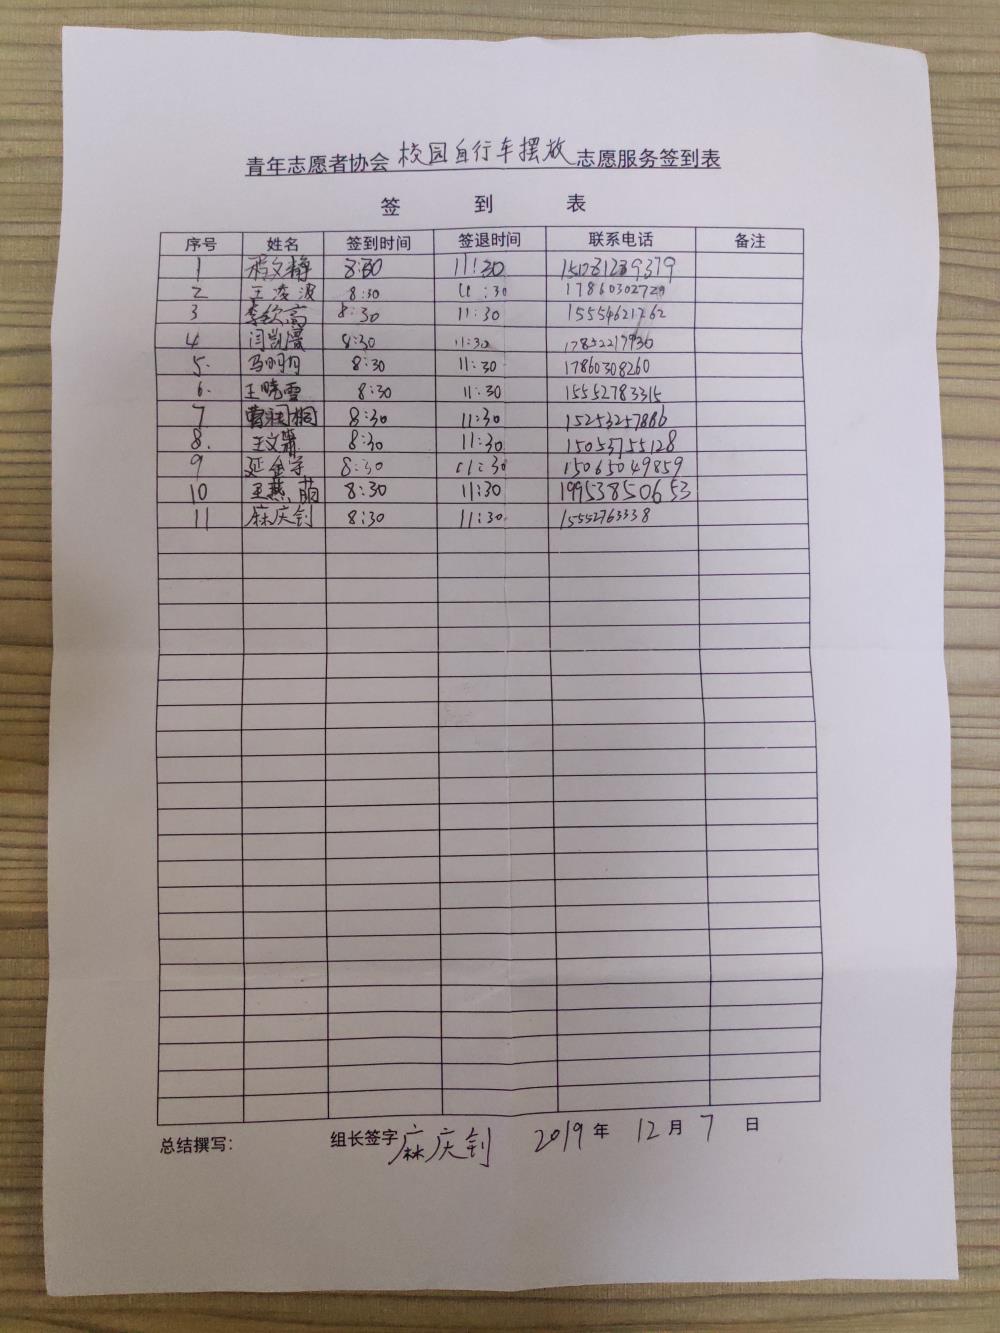 青年志愿者协会 校园自行车摆放 志愿服务签到表
签 到 表
序号 姓名 签到时间 签退时间 联系电话 备注
1 文静 8:30 11:30
2 王凌波 8:30 11:30 17860302729
3 李钦高 8:30 11:30 15554621262
4 闫凯漫 8:30 11:30 17852217936
5. 马明月 8:30 11:30 17860308260
6. 王晓雪 8:30 11:30 15552783315
7 曹润桐 8:30 11:30 15253257886
8. 王文 8:30 11:30 15053755128
9 延金 8:30 11:30 15065049859
10 王燕萌 8:30 11:30 19953850653
11 麻庆钊 8:30 11:30 15552763338
总结撰写: 组长签字 麻庆钊 2019 年 12 月 7 日